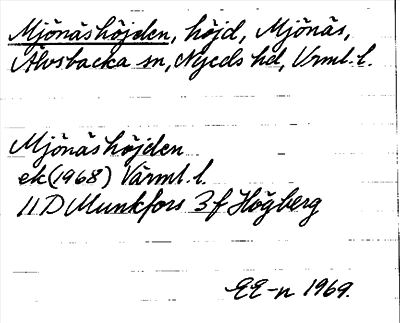 Mjönäshöjden, höjd, Mjönäs,
Älvsbacka sn, Nyeds hd, Vrml. l.
Mjönäshöjden
ek (1968) Värml. l.
11 D Munkfors 3 f Högberg
EE-n 1969.